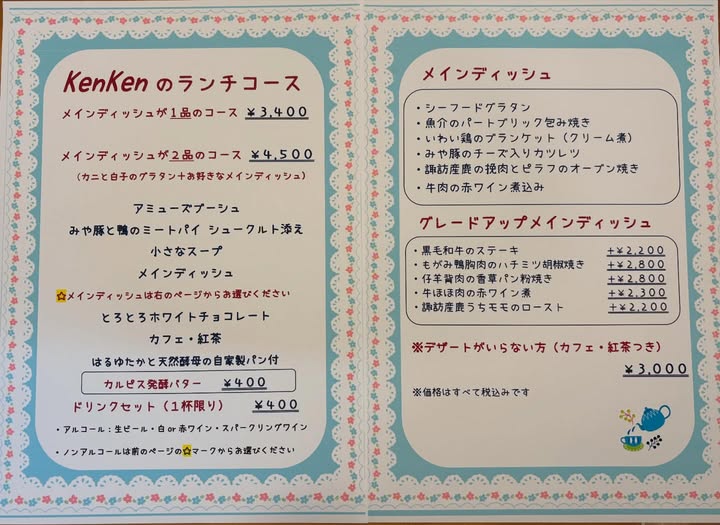 KenKenのランチコース
メインディッシュが1品のコース ¥3,400
メインディッシュが2品のコース ¥4,500
(カニと白子のグラタン+お好きなメインディッシュ)
アミューズブーシュ
みや豚と鴨のミートパイ シュークルト添え
小さなスープ
メインディッシュ
☆メインディッシュは右のページからお選びください
とろとろホワイトチョコレート
カフェ・紅茶
はるゆたかと天然酵母の自家製パン付
カルピス発酵バター ¥400
ドリンクセット(1杯限り) ¥400
・アルコール:生ビール・白or赤ワイン・スパークリングワイン
・ノンアルコールは前のページの☆マークからお選びください
メインディッシュ
・シーフードグラタン
・魚介のパートブリック包み焼き
・いわい鶏のブランケット(クリーム煮)
・みや豚のチーズ入りカツレツ
・諏訪産鹿の挽肉とピラフのオーブン焼き
・牛肉の赤ワイン煮込み
グレードアップメインディッシュ
・黒毛和牛のステーキ +¥2,200
・もがみ鴨胸肉のハチミツ胡椒焼き +¥2,800
・仔羊背肉の香草パン粉焼き +¥2,800
・牛ほほ肉の赤ワイン煮 +¥2,300
・諏訪産鹿うちモモのロースト +¥2,200
※デザートがいらない方(カフェ・紅茶つき)
¥3,000
※価格はすべて税込みです